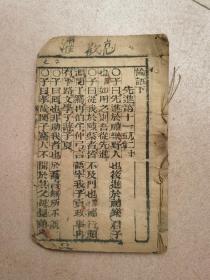 論語下
先進第十一
○子曰先進於禮樂野人也後進於禮樂君子
也如用之則吾從先進
○子曰從我於陳蔡者皆不及門也德行顏
淵閔子騫冉伯牛仲弓言語宰我子貢政事冉
有季路文學子游子夏
○子曰回也非助我者也於吾言無所不說
○子曰孝哉閔子騫人不間於其父母昆弟